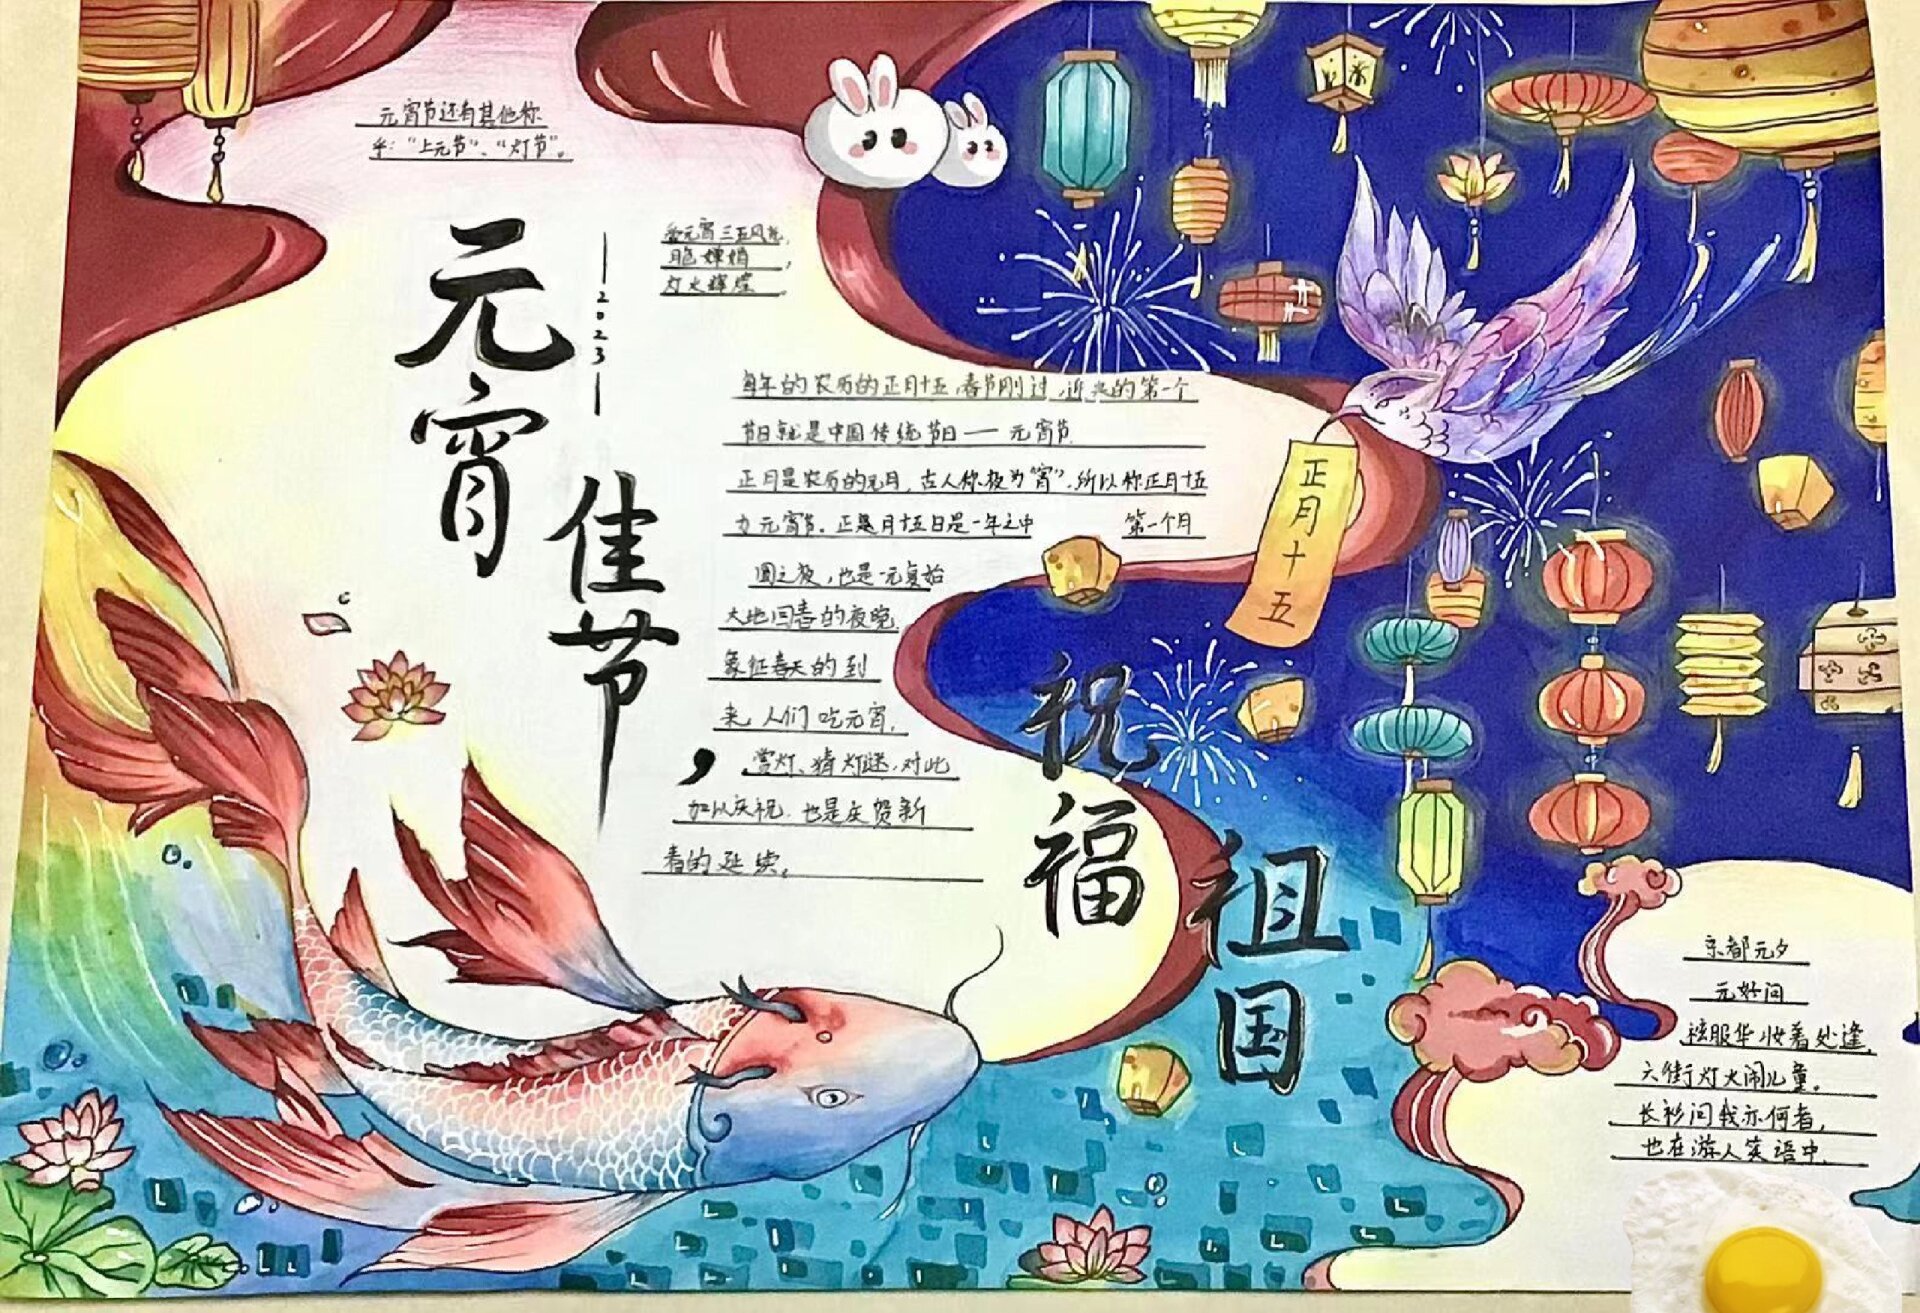 元宵节还有其他称
乎:"上元节"、"灯节"。
元宵
佳节,
—2023—
元宵三五风光,
月色婵娟,
灯火辉煌
每年的农历的正月十五,春节刚过,迎来的第一个
节日就是中国传统节日——元宵节.
正月是农历的元月,古人称夜为"宵",所以称正月十五
为元宵节.正是月十五日是一年之中
第一个月
圆之夜,也是一元复始
大地回春的夜晚,
象征春天的到
来,人们吃元宵,
赏灯、猜灯谜,对此
加以庆祝,也是庆贺新
春的延续。
正月十五
祝福
祖国
京都元夕
元好问
袨服华妆着处逢,
六街灯火闹儿童。
长衫问我亦何者,
也在游人笑语中.